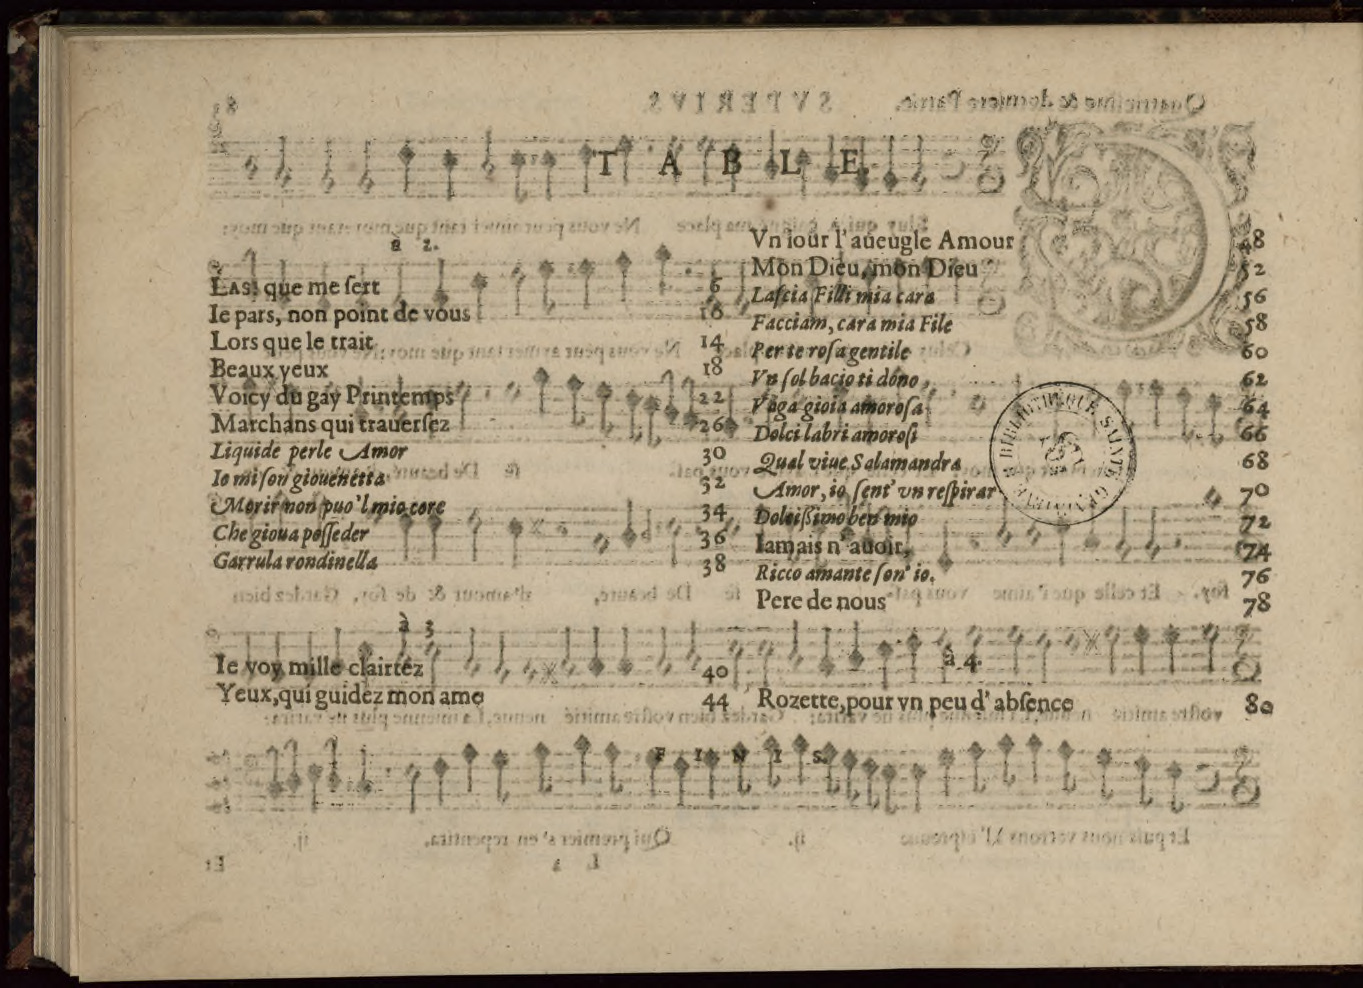 TABLE
à 2.
LAS! que me ſert 6
Ie pars, non point de vous 10
Lors que le trait 14
Beaux yeux 18
Voicy du gay Printemps 22
Marchans qui trauerſez 26
Liquide perle Amor 30
Io mi ſon giouenetta 32
Morir non puo'l mio core 34
Che gioua poſſeder 36
Garrula rondinella 38
à 3
Ie voy mille clairtez 40
Yeux, qui guidez mon ame 44
Vn iour l'aueugle Amour 48
Mon Dieu, mon Dieu 52
Laſcia Filli mia cara 56
Facciam, cara mia File 58
Per te roſa gentile 60
Vn ſol bacio ti dóno 62
Vaga gioia amoroſa 64
Dolci labri amoroſi 66
Qual viue Salamandra 68
Amor, io ſent' vn reſpirar 70
Dolciſſimo ben mio 72
Iamais n'auoir, 74
Ricco amante ſon' io. 76
Pere de nous 78
à 4.
Rozette, pour vn peu d'abſence 80
FINIS.
BIBLIOTHEQUE SAINTE GENEVIEVE